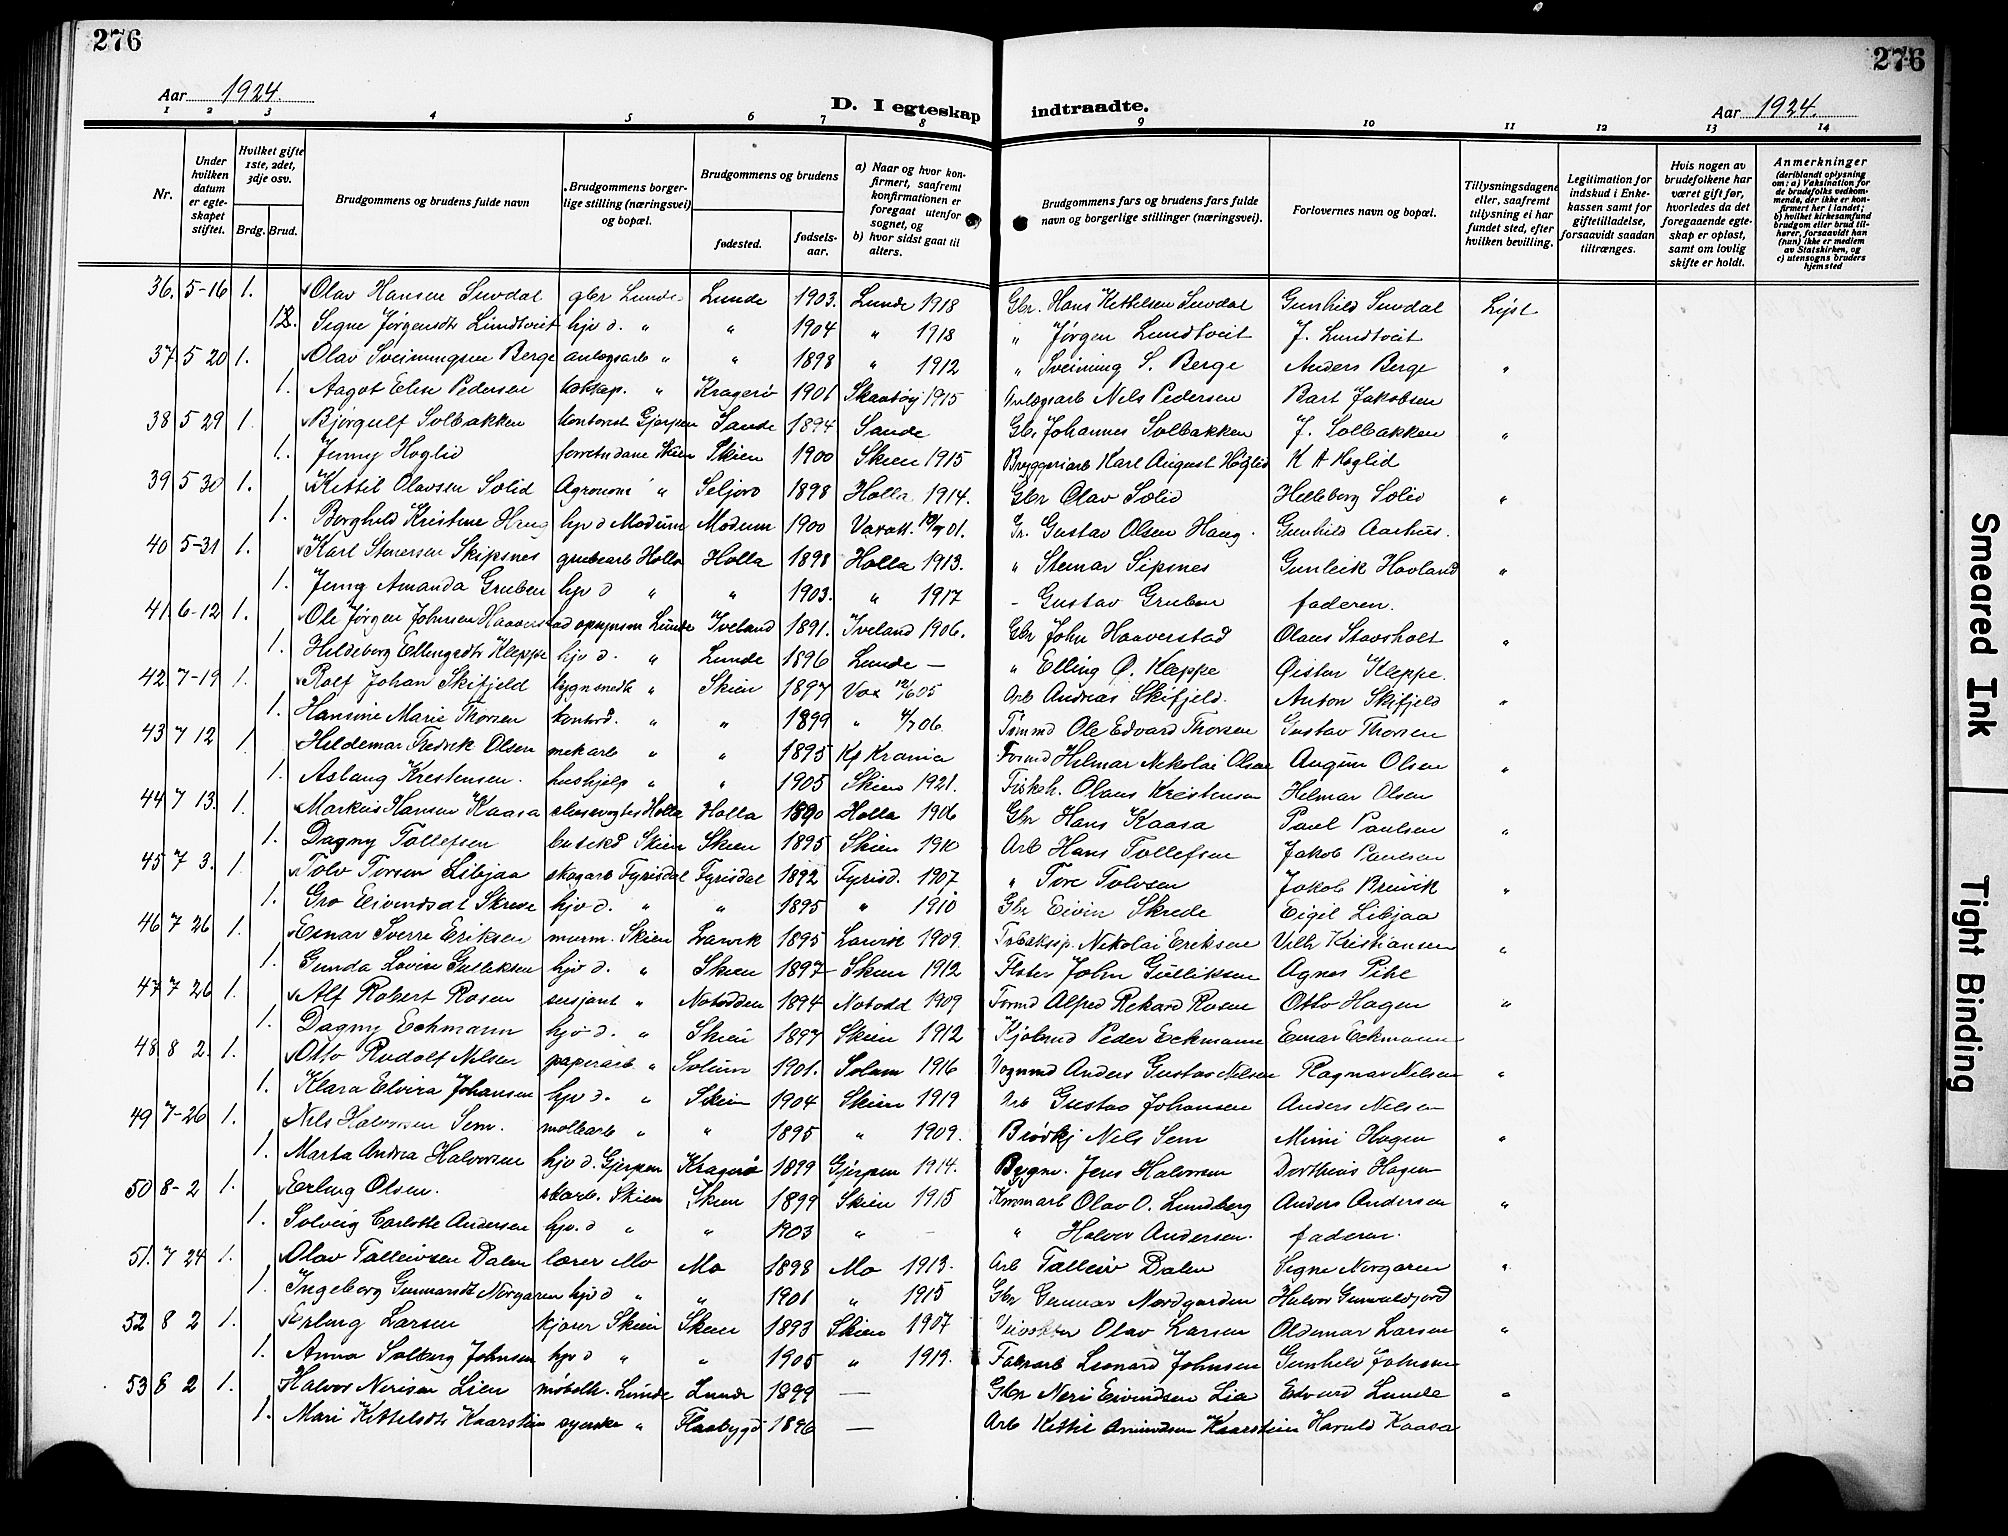 276
276
Aar 1924.
D. I egteskap indtraadte.
Aar 1924.
1 2 3 4 5 6 7 8 9 10 11 12 13 14
Nr.
Under hvilken datum er egteskapet stiftet.
Hvilket gifte 1ste, 2det, 3dje osv.
Brdg. Brud.
Brudgommens og brudens fulde navn
Brudgommens borgerlige stilling (næringsvei) og bopæl.
Brudgommens og brudens
fødested.
fødselsaar.
a) Naar og hvor konfirmert, saafremt konfirmationen er foregaat utenfor sognet, og
b) hvor sidst gaat til alters.
Brudgommens fars og brudens fars fulde navn og borgerlige stillinger (næringsvei).
Forlovernes navn og bopæl.
Tillysningsdagene eller, saafremt tillysning ei har fundet sted, efter hvilken bevilling.
Legitimation for indskud i Enkekassen samt for giftetilladelse, forsaavidt saadan tiltrænges.
Hvis nogen av brudefolkene har været gift før, hvorledes da det foregaaende egteskap er opløst, samt om lovlig skifte er holdt.
Anmerkninger (deriblandt oplysning om: a) Vaksination for de brudefolks vedkommende, der ikke er konfirmert her i landet; b) hvilket kirkesamfund brudgom eller brud tilhører, forsaavidt han (hun) ikke er medlem av Statskirken, og c) utensogns bruders hjemsted
36. 5-16 1. Olav Hansen Suvdal gbr Lunde Lunde 1903. Lunde 1918 Gbr. Hans Kettelsen Suvdal Gunhild Suvdal Lyst
1. Signe Jørgensdt Lundtveit hjv d. " " 1904 " 1918 " Jørgen Lundtveit J. Lundtveit
37 5 20 1. Olav Sveinungsen Berge anlægsarb " " 1898 " 1912 " Sveinung S. Berge Anders Berge "
1. Aagot Elise Pedersen " Kragerø 1901 Skaatøy 1915 Anlægsarb Nils Pedersen Bart Jakobsen
38 5 29 1. Bjørgulf Solbakken kontorist Gjerpen Sande 1894 Sande Gbr Johannes Solbakken J. Solbakken "
1. Jenny Hoglid Skien Skien 1900 Skien 1915 Bryggeriarb Karl August Hoglid K A Hoglid
39 5 30 1. Kittil Olavsen Solid Agronom " Seljord 1898 Holla 1914. Gbr Olav Solid Helleborg Solid "
1. Borghild Kristine Haug hjv d Modum Modum 1900 01. Gustav Olsen Haug. Gunhild Aarhus.
40 5-31 1. Karl Stenersen Skipsnes grubearb Holla Holla 1898 Holla 1913. " Stenar Sipsnes Gunleik Hovland "
1. Jenny Amanda Gruben hjv d " " 1903. " 1917 - Gustav Gruben faderen.
41. 6-12 1. Ole Jørgen Johnsen Haaverstad Lunde Iveland 1891. Iveland 1906. Gbr John Haaverstad Olaus Stavsholt "
1. Hildeborg Ellingsdt Kleppe hjv d. " Lunde 1896 Lunde - " Elling Ø. Kleppe Øisten Kleppe.
42 7-19 1. Rolf Johan Skifjeld " Skien 1897 05 Arb Andreas Skifjeld. Anton Skifjeld "
1. Hansine Marie Thorsen kontord. " " 1899 " 06. Tømmd Ole Edvard Thorsen Gustav Thorsen
43 7 12 1. Hildemar Fredrik Olsen mekarb " " 1895 Kr.ania Formd Hilmar Nikolai Olsen August Olsen "
1. Aslaug Kristensen. hushjelp " " 1905 Skien 1921. Fiskeh. Olaus Kristensen Hilmar Olsen
44 7 13. 1. Markus Hansen Kaasa slusevogter Holla Holla 1890 Holla 1906 Gbr Hans Kaasa Paul Paulsen "
1. Dagny Tollefsen butikd Skien Skien 1895 Skien 1910 Arb Hans Tollefsen Jakob Paulsen
45 7 3. 1. Tolv Torsen Libjaa skogarb Fyrisdal Fyrisdal 1892 Fyrisd. 1907 " Tore Tolvsen Jakob Breivik "
1. Gro Eivindsdt Skrede hjv d. " " 1895 " 1910 Gbr Eivin Skrede Eigil Libjaa
46 7 26 1. Einar Sverre Eriksen murm. Skien Larvik 1895 Larvik 1909. Nikolai Eriksen Vilh Kristiansen "
1. Gunda Lovise Gulliksen hjv d. " Skien 1897 Skien 1912 John Gulliksen Agnes Pihl
47 7 26 1. Alf Robert Rosen sersjant " Notodden 1894 Notodd 1909 Formd Alfred Rikard Rosen Otto Hagen "
1. Dagny Eckmann hjv d. " Skien 1897 Skien 1912 Kjøbmd Peder Eckmann Einar Eckmann
48 8 2. 1. Otto Rudolf Nilsen papirarb " Solum 1901. Solum 1916 Vognmd Anders Gustav Nilsen Ragnar Nilsen "
1. Klara Elvira Johansen hjv d. " Skien 1904 Skien 1919 Arb Gustav Johansen Anders Nilsen
49 7-26 1. Nils Halvorsen Sem. møllearb " " 1895 " 1909. Brødkj Nils Sem Mimi Hagen "
1. Marta Andrea Halvorsen hjv d. Gjerpen Kragerø 1899 Gjerpen 1914. Bygm. Jens Halvorsen Dortheus Hagen
50 8-2 1. Erling Olsen. skarb. Skien Skien 1899 Skien 1915 Kommarb Olav O. Lundberg Anders Andersen "
1. Solveig Carlotte Andersen hjv. d " " 1903 " - " Halvor Andersen. faderen.
51. 7 24 1. Olav Talleivsen Dalen lærer Mo Mo 1898 Mo 1913. Arb Talleiv Dalen Signe Norgaren "
1. Ingeborg Gunnarsdt Norgaren hjv d " " 1901 " 1915 Gbr Gunnar Nordgarden Halvor Gunvaldjord
52 8 2 1. Erling Larsen kjører Skien Skien 1893 Skien 1907 Olav Larsen Oldemar Larsen "
1. Anna Solberg Johnsen hjv d " " 1905 " 1919. Fabrarb Leonard Johnsen Gunhild Johnsen
53 8 2 1. Halvor Nerisen Lien møbelh. Lunde Lunde 1899 — Gbr Neri Eivindsen Lia Edvard Lunde "
1. Mari Kittelsdtr Kaarstein syerske " Flaabygd 1896 — Arb Kittil Amundsen Kaarstein Harald Kaasa
Smeared Ink
Tight Binding